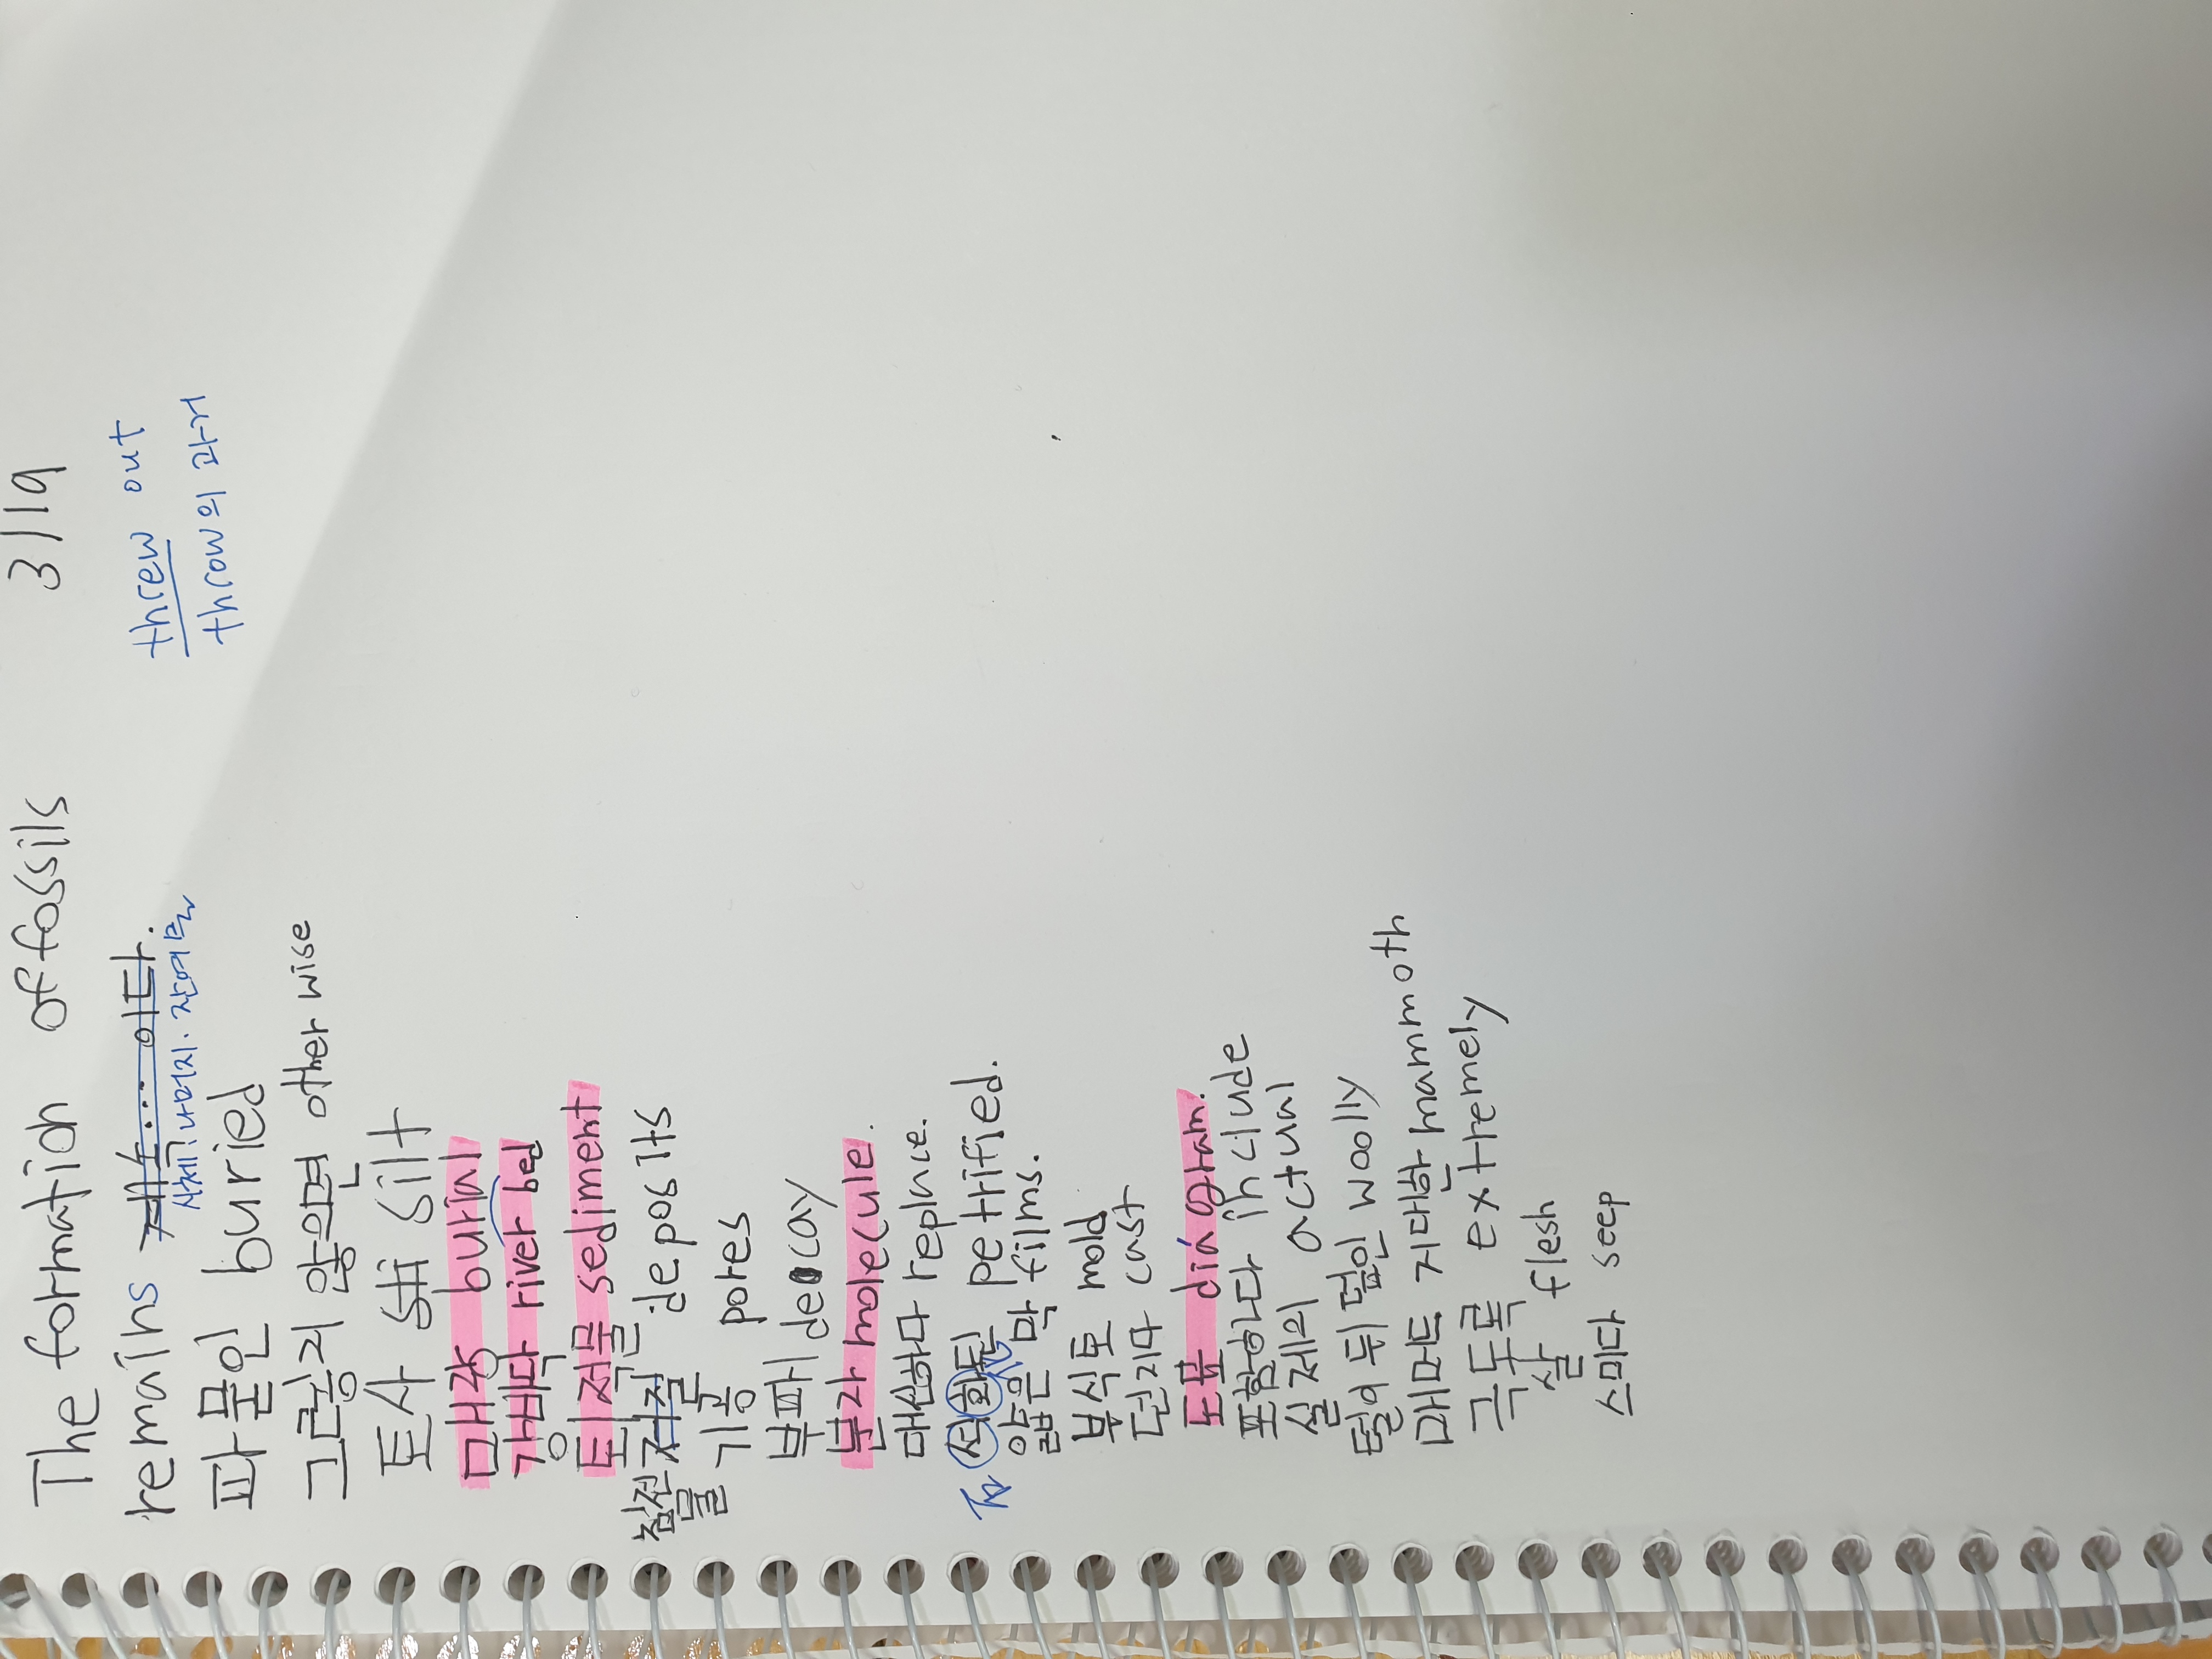 The formation of fossils 3/19
remains 계속... 이다. threw out
사체 나머지. 잔여물 throw의 과거
파묻인 buried
그렇지 않으면 otherwise
토사 silt
매장 burial
강바닥 river bed
퇴적물 sediment
침전물 deposits
기공 pores
부패 decay
분자 molecule.
대신하다 replace.
석화된 petrified.
얇은 막 films.
부식토 mold
던지다 cast
도표 diagram.
포함하다 include
실제의 actual
털이 뒤덮인 woolly
매머드 거대한 mammoth
극도록 extremely
살 flesh
스미다 seep